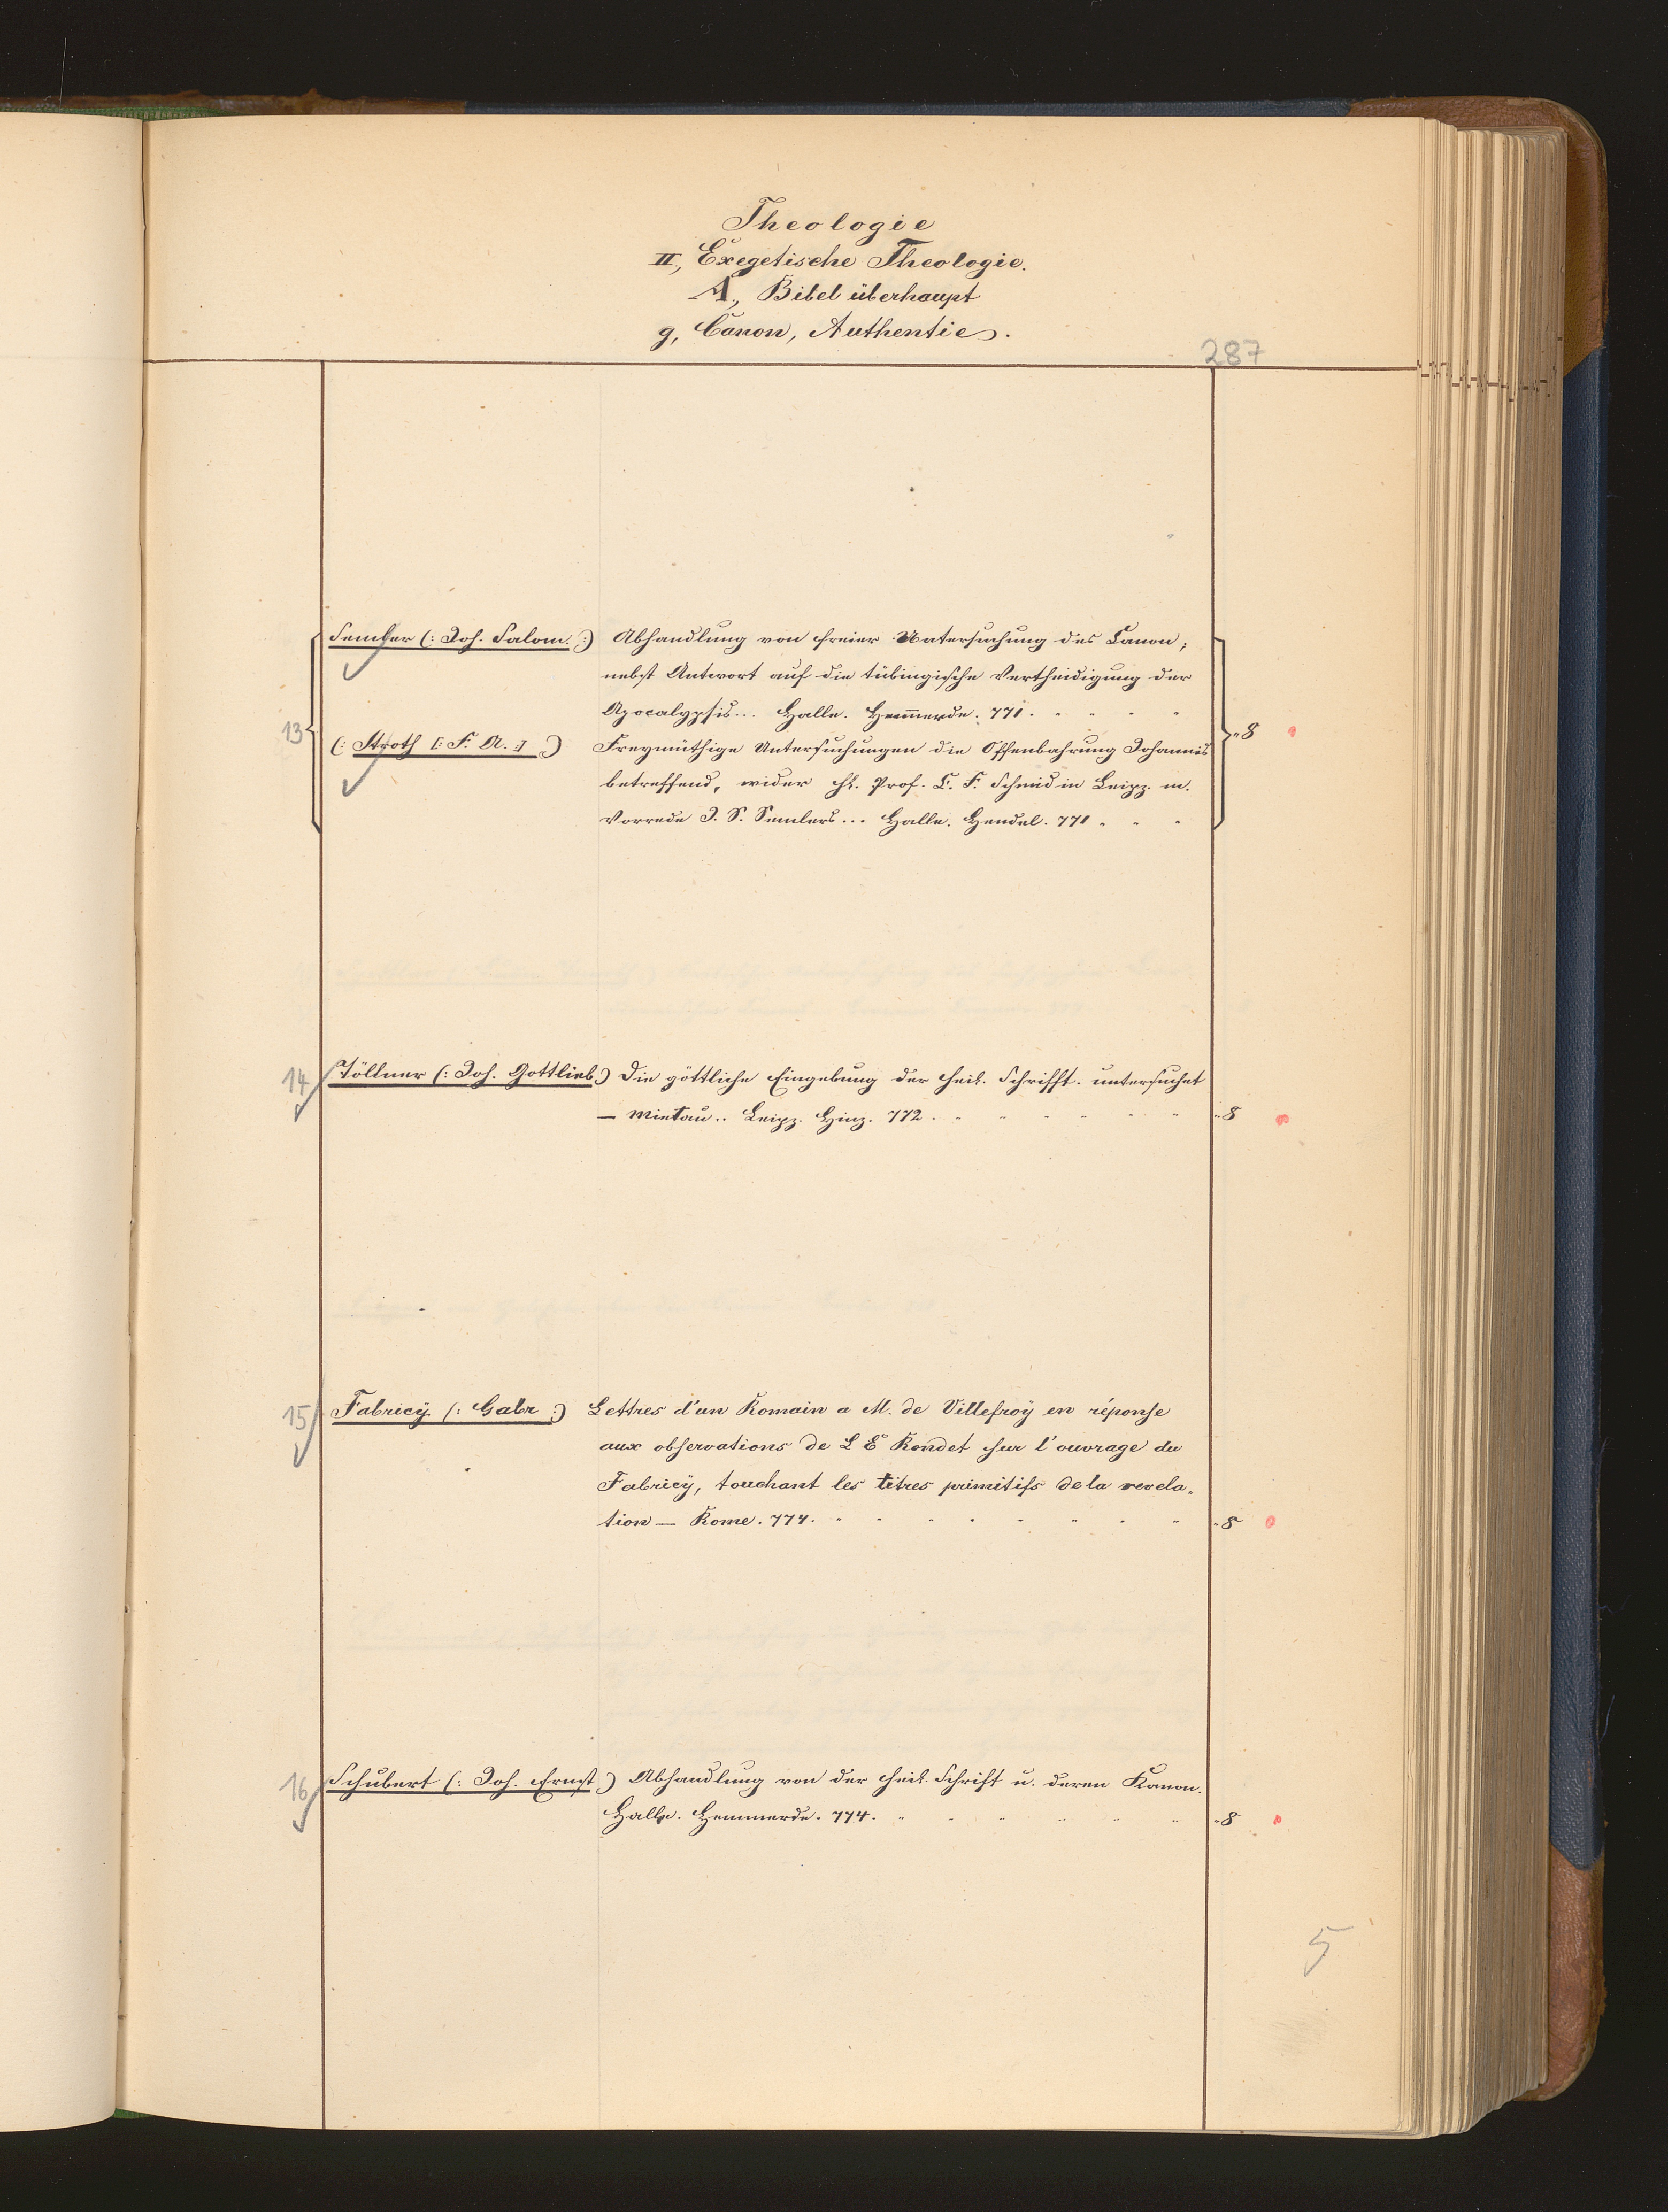 Theologie
II., Exegetische Theologie.
A., Bibel überhaupt
g, Canon, Authentie.
287
Semler (: Joh. Salom. :) Abhandlung von freier Untersuchung des Canon,
nebst Antwort auf die tübingische Vertheidigung der
Apocalypsis... Halle. Hem̄erde. 771.
13
"8
(: Stroth [: F. A. :] :) Freymüthige Untersuchungen die Offenbahrung Johannis
betreffend, wider H. Prof. C. F. Schmid in Leipz. m.
Vorrede J. S. Semlers... Halle. Hendel. 771
14 Töllner (: Joh. Gottlieb :) Die göttliche Eingebung der heil. Schrifft. untersuchet
— Mietau.. Leipz. Hinz. 772. "8
15 Fabricÿ (: Gabr :) Lettres d'un Romain a M. de Villefroÿ en réponse
aux observations de L E Rondet sur l'ouvrage du
Fabricÿ, touchant les titres primitifs de la revela-
tion — Rome. 774. "8
16 Schubert (: Joh. Ernst :) Abhandlung von der heil. Schrift u. deren Kanon.
Halle. Hemmerde. 774. "8
5